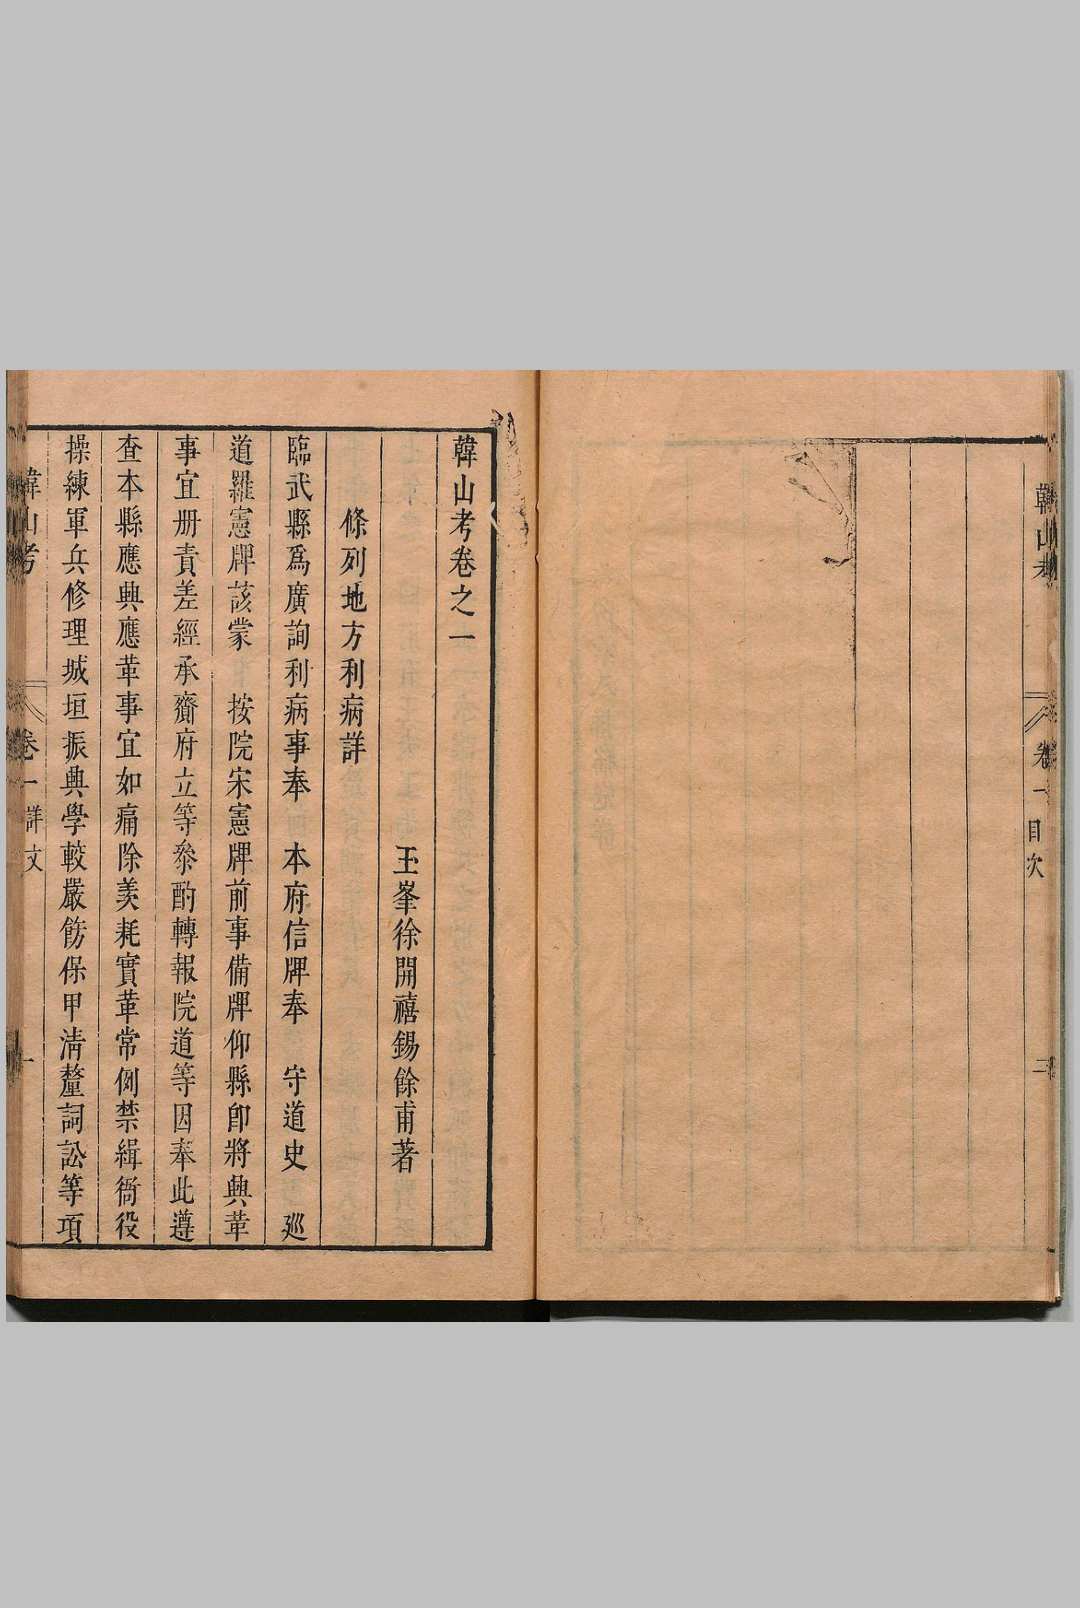 韓山考
卷一
目次
二
韓山考卷之一
玉峯徐開禧錫餘甫著
條列地方利病詳
臨武縣爲廣詢利病事奉 本府信牌奉 守道史 巡
道羅憲牌該蒙 按院宋憲牌前事備牌仰縣卽將興革
事宜册責差經承齎府立等叅酌轉報院道等因奉此遵
查本縣應興應革事宜如痛除羡耗實革常例禁緝衙役
操練軍兵修理城垣振興學較嚴飭保甲清釐詞訟等項
韓山考
卷一
詳文
一